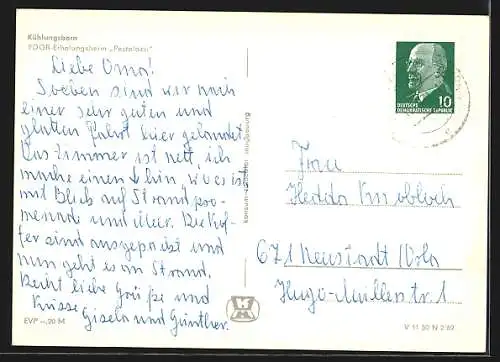 Kühlungsborn
FDGB-Erholungsheim „Pestalozzi"
Liebe Oma!
Soeben sind wir nach
einer sehr guten und
glatten Fahrt hier gelandet.
Das Zimmer ist nett, ich
mache einen hin, wo es ist
mit Blick auf Strandpro-
menade und Meer. Die Kof-
fer sind ausgepackt und
nun geht es am Strand.
Recht liebe Grüße und
Küsse
Gisela und Günther.
EVP -,20 M
DEUTSCHE
DEMOKRATISCHE REPUBLIK
10
Frau
Hedda Knobloch
671 Neustadt/Orla
Hugo-Müller-str. 1
V 11 50 N 2/69